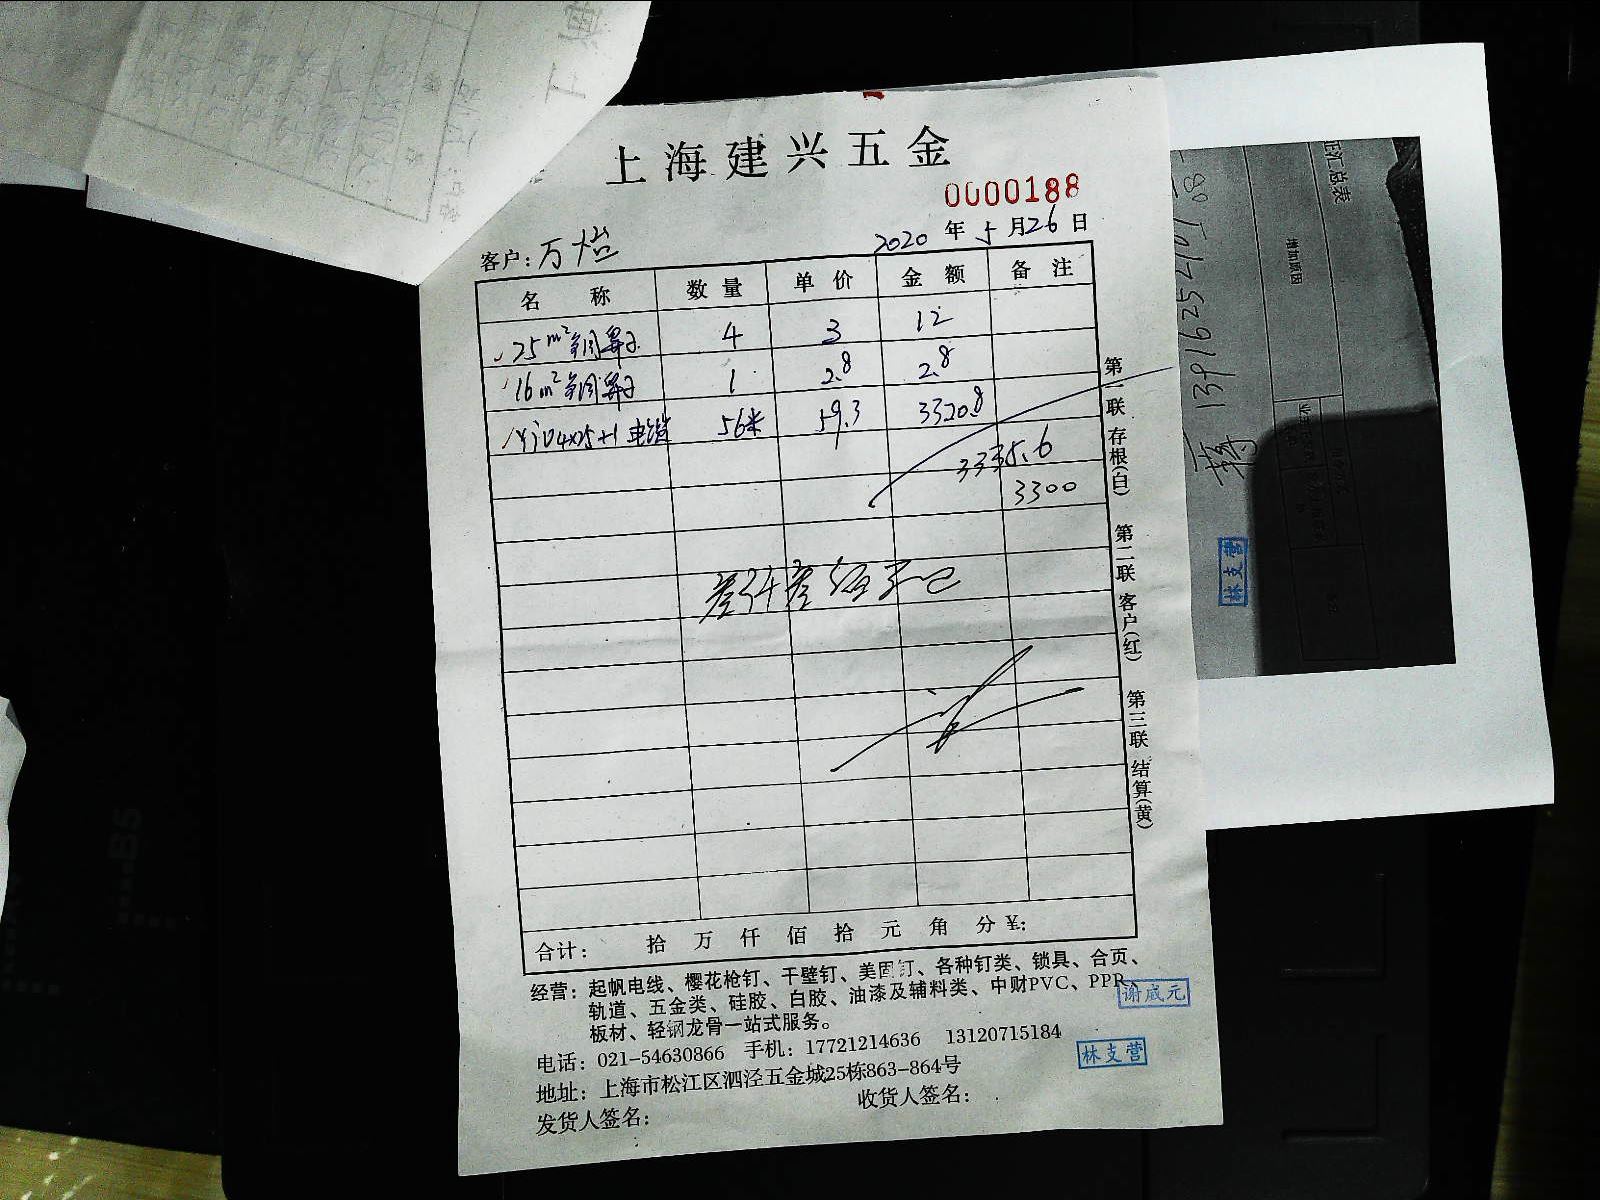 上海建兴五金
0000188
客户：万怡 2020年5月26日
名称 数量 单价 金额 备注
25m²铜鼻子 4 3 12
16m²铜鼻子 1 2.8 2.8
YJV4×25+1电缆 56米 59.3 3320.8
3335.6
3300
叁仟叁佰元正
合计： 拾 万 仟 佰 拾 元 角 分 ¥:
第一联 存根(白) 第二联 客户(红) 第三联 结算(黄)
经营：起帆电线、樱花枪钉、干壁钉、美固钉、各种钉类、锁具、合页、
轨道、五金类、硅胶、白胶、油漆及辅料类、中财PVC、PPR、
板材、轻钢龙骨一站式服务。
谢咸元
电话：021-54630866 手机：17721214636 13120715184
林支营
地址：上海市松江区泗泾五金城25栋863-864号
发货人签名： 收货人签名：
汇总表
增加原因
蒋 13916252101
林支营
B5